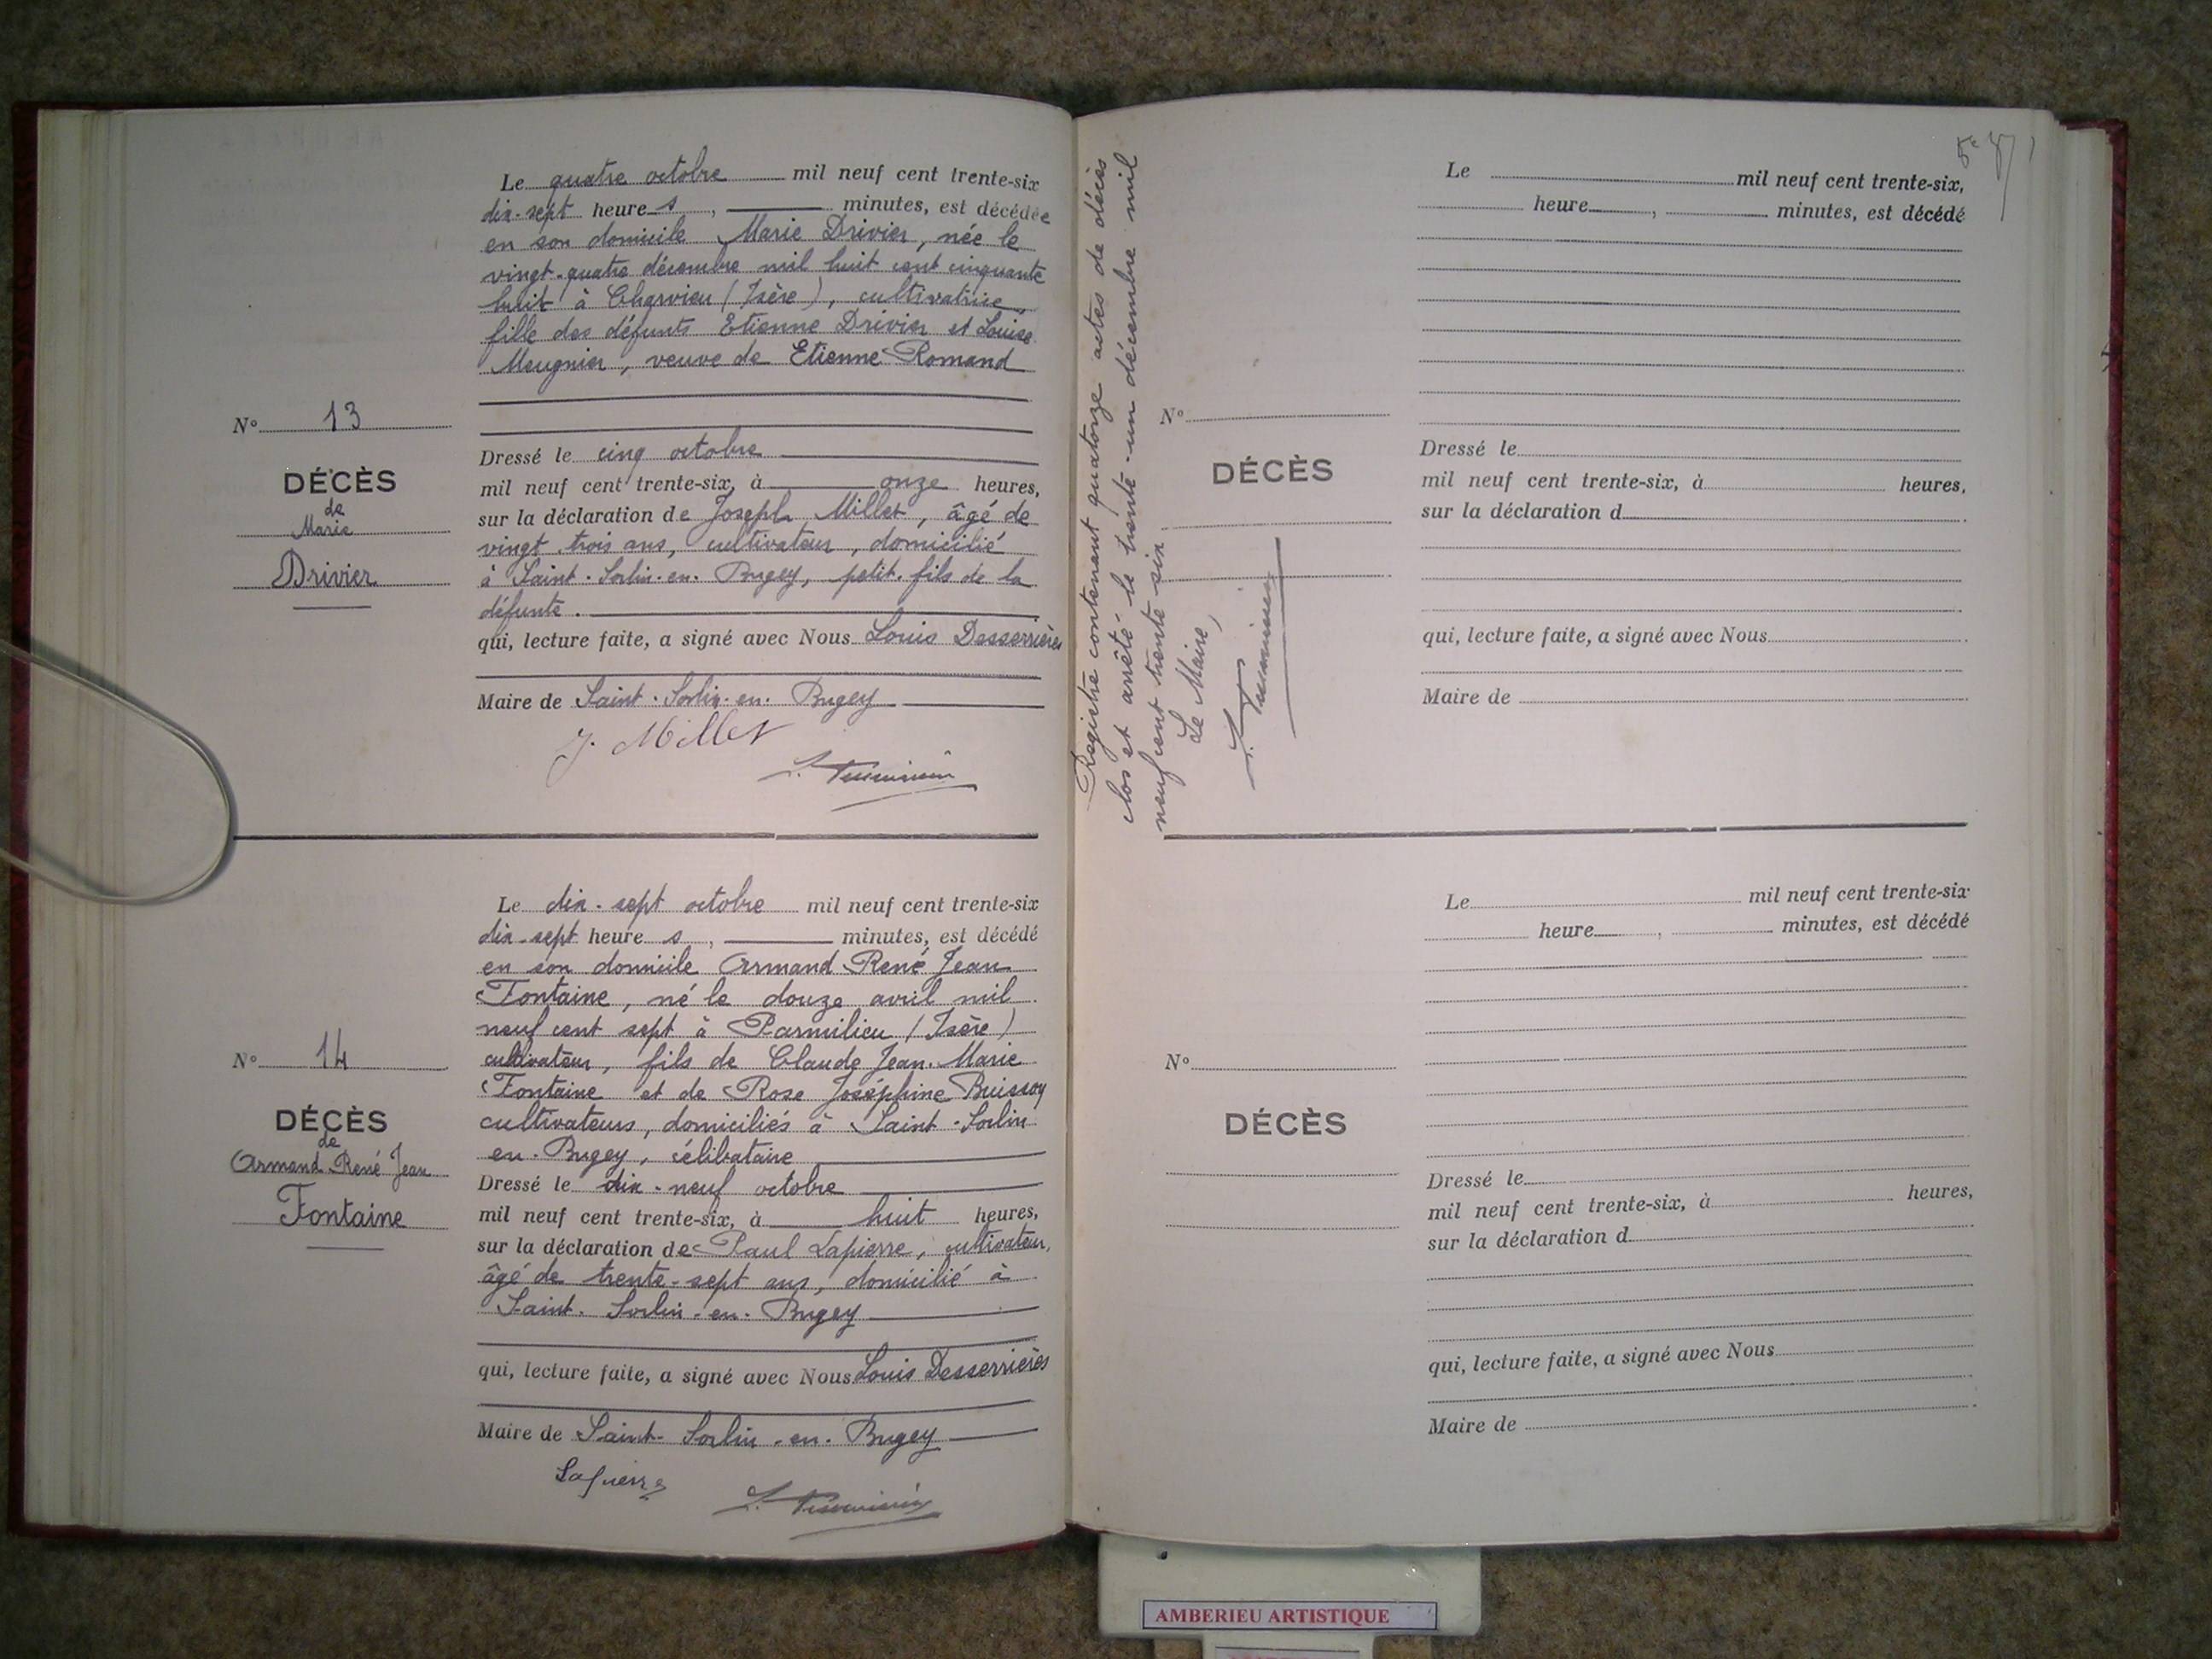 Le quatre octobre mil neuf cent trente-six
dix-sept heures, minutes, est décédée
en son domicile Marie Drivier, née le
vingt-quatre décembre mil huit cent cinquante
huit à Charvieu (Isère), cultivatrice,
fille des défunts Etienne Drivier et Louise
Meugnier, veuve de Etienne Romand
N° 13
DÉCÈS
de
Marie
Drivier
Dressé le cinq octobre
mil neuf cent trente-six, à onze heures,
sur la déclaration de Joseph Millet, âgé de
vingt-trois ans, cultivateur, domicilié
à Saint-Sorlin-en-Bugey, petit-fils de la
défunte.
qui, lecture faite, a signé avec Nous Louis Desserrières
Maire de Saint-Sorlin-en-Bugey
J. Millet
Le dix-sept octobre mil neuf cent trente-six
dix-sept heures, minutes, est décédé
en son domicile Armand René Jean
Fontaine, né le douze avril mil
neuf cent sept à Parmilieu (Isère)
cultivateur, fils de Claude Jean-Marie
Fontaine et de Rose Joséphine Buisson
cultivateurs, domiciliés à Saint-Sorlin
en-Bugey, célibataire
N° 14
DÉCÈS
de
Armand René Jean
Fontaine
Dressé le dix-neuf octobre
mil neuf cent trente-six, à huit heures,
sur la déclaration de Paul Lapierre, cultivateur,
âgé de trente-sept ans, domicilié à
Saint-Sorlin-en-Bugey
qui, lecture faite, a signé avec Nous Louis Desserrières
Maire de Saint-Sorlin-en-Bugey
Lapierre
Registre contenant quatorze actes de décès
clos et arrêté le trente-un décembre mil
neuf cent trente six
Le Maire,
Le mil neuf cent trente-six,
heure , minutes, est décédé
N°
DÉCÈS
Dressé le
mil neuf cent trente-six, à heures,
sur la déclaration d
qui, lecture faite, a signé avec Nous
Maire de
Le mil neuf cent trente-six
heure , minutes, est décédé
N°
DÉCÈS
Dressé le
mil neuf cent trente-six, à heures,
sur la déclaration d
qui, lecture faite, a signé avec Nous
Maire de
AMBERIEU ARTISTIQUE